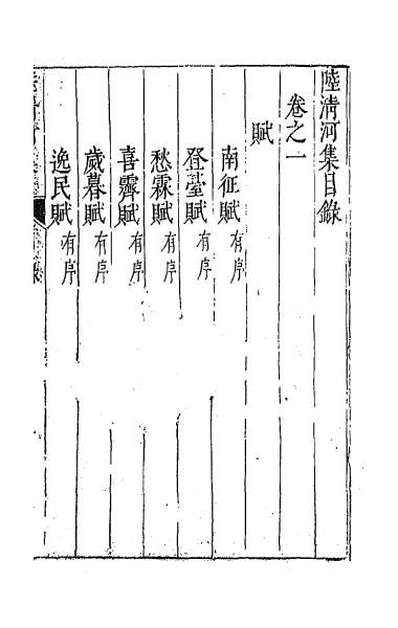 陸清河集目錄
卷之一
賦
南征賦有序
登臺賦有序
愁霖賦有序
喜霽賦有序
歲暮賦有序
逸民賦有序